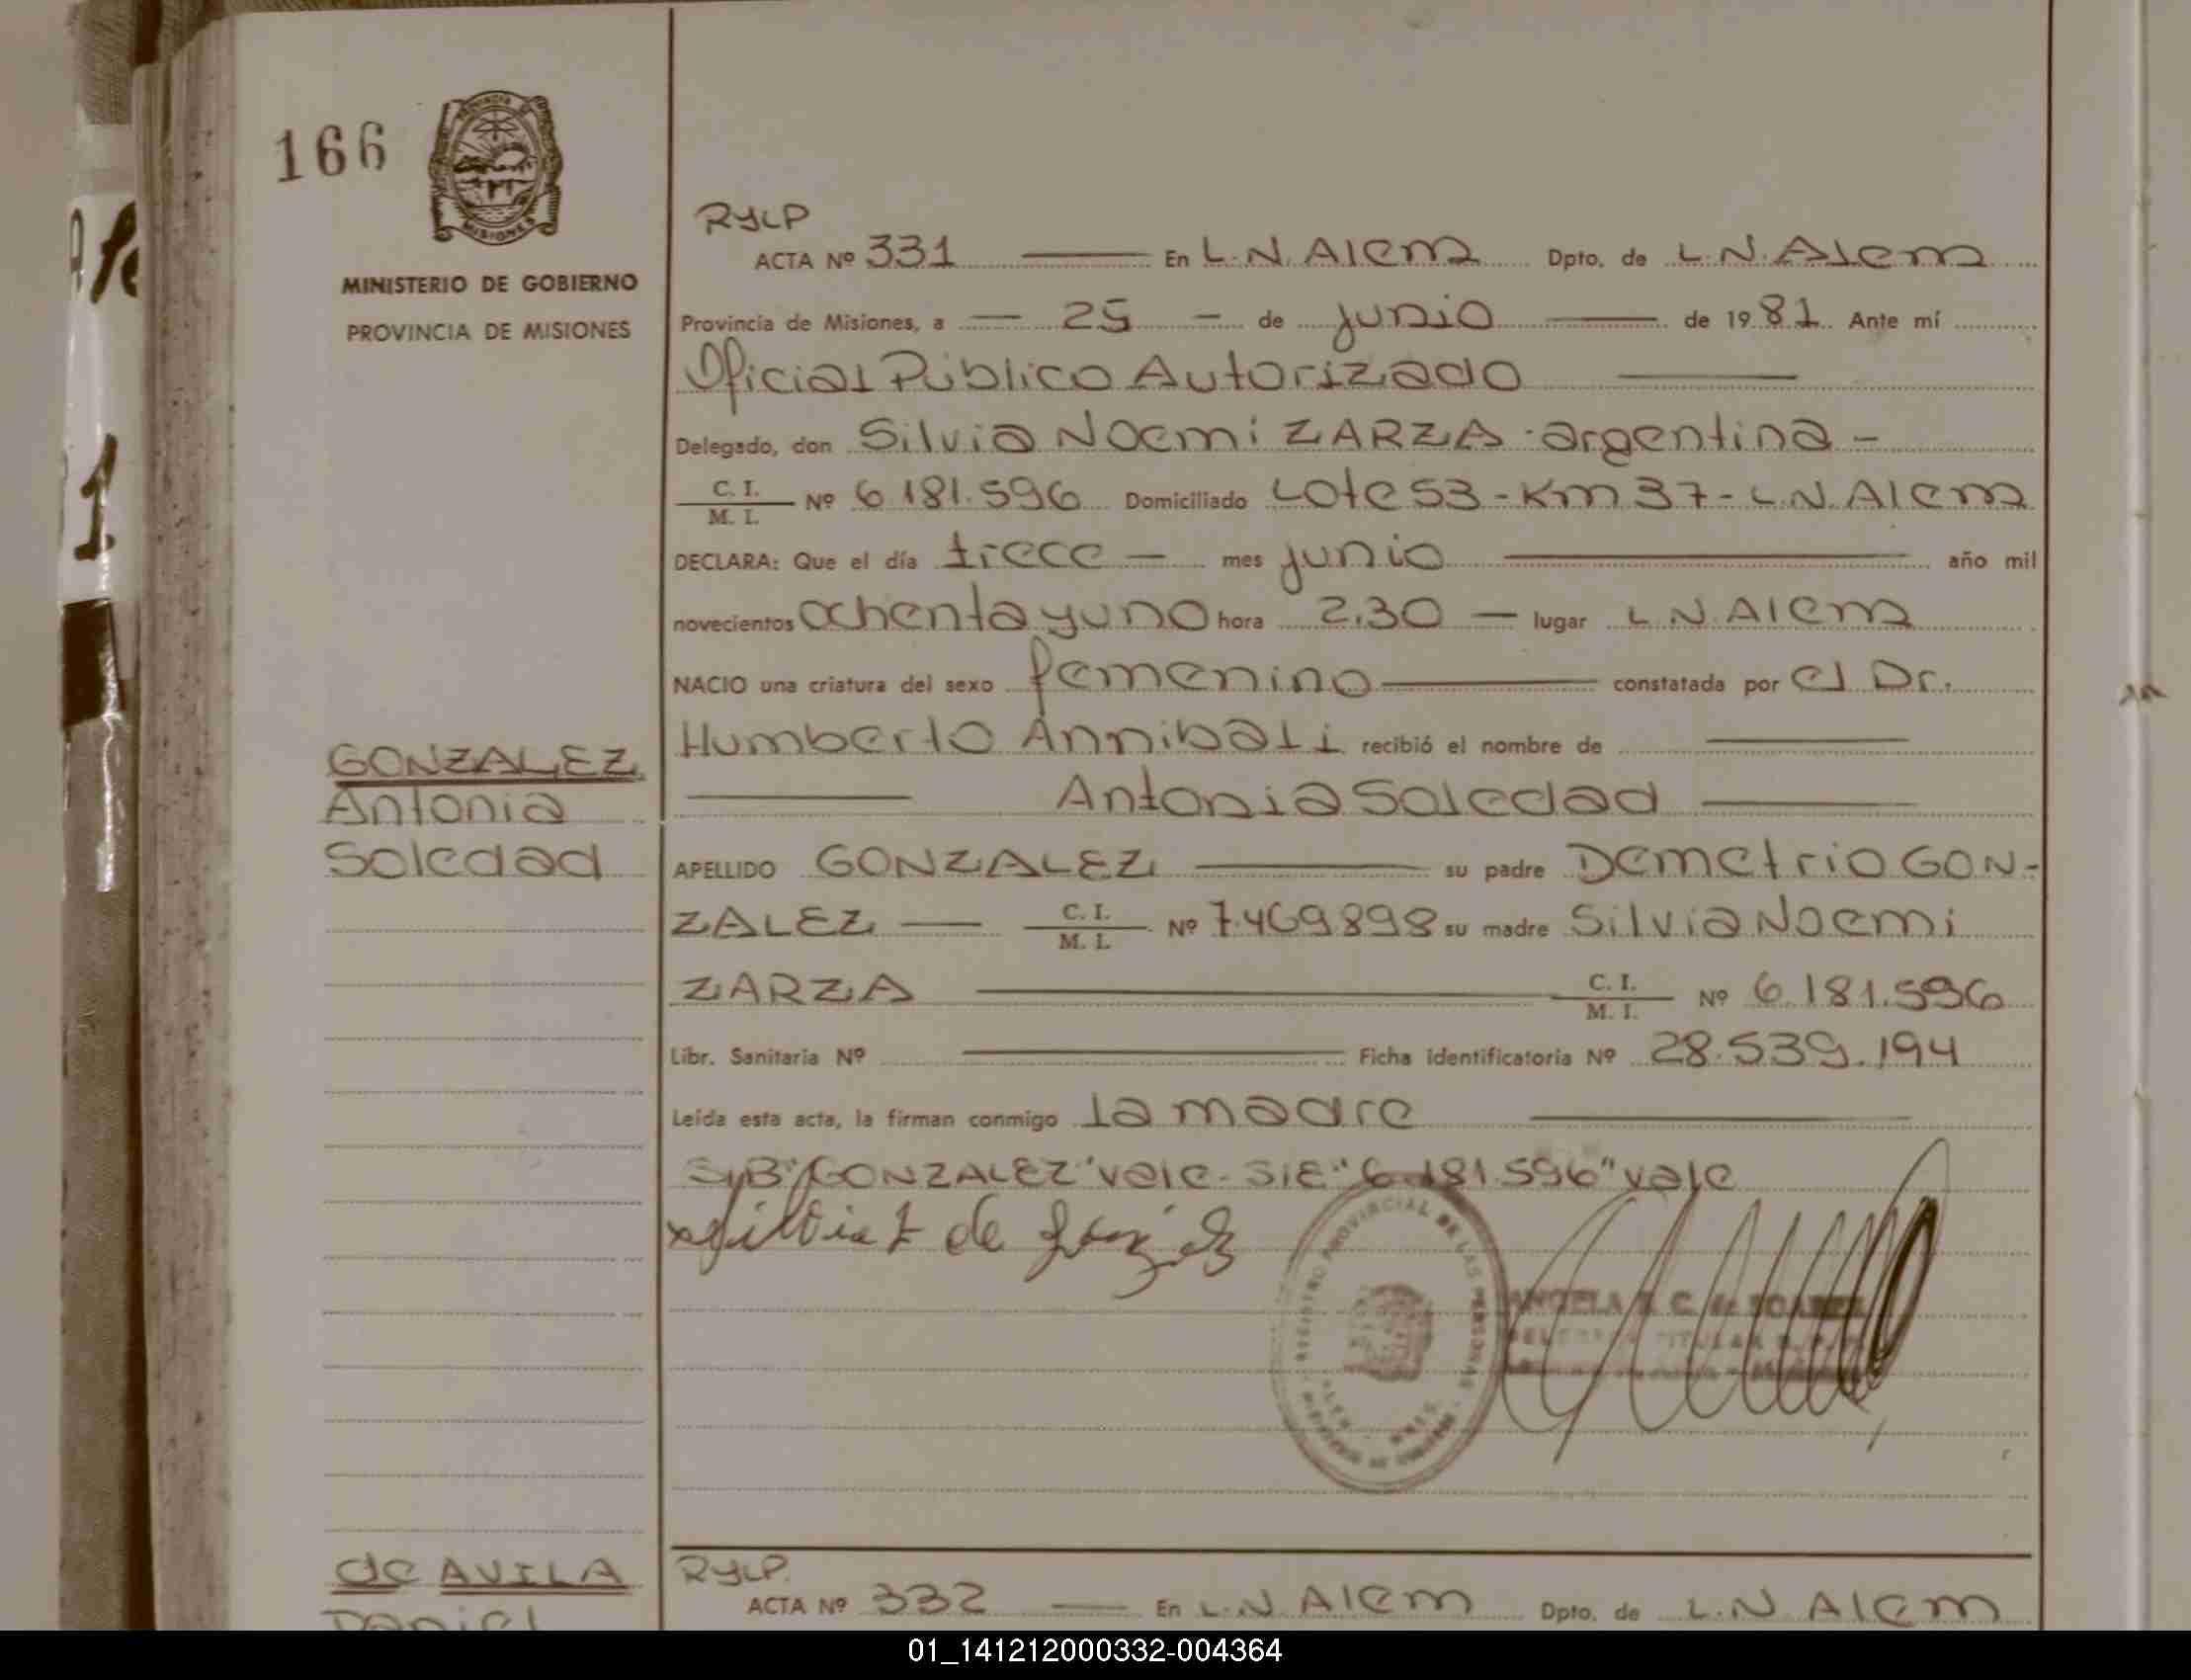 166
MINISTERIO DE GOBIERNO
PROVINCIA DE MISIONES
RYLP
ACTA Nº 331 — En L.N. Alem Dpto. de L.N. Alem
Provincia de Misiones, a — 25 — de junio — de 1981. Ante mí
Oficial Público Autorizado —
Delegado, don Silvia Noemi ZARZA - argentina -
C. I. / M. I. Nº 6.181.596 Domiciliado Lote 53 - Km 37 - L.N. Alem
DECLARA: Que el día trece — mes junio — año mil
novecientos ochenta y uno hora 2,30 — lugar L.N. Alem
NACIO una criatura del sexo femenino — constatada por el Dr.
Humberto Annibali recibió el nombre de —
— Antonia Soledad —
GONZALEZ
Antonia
Soledad
APELLIDO GONZALEZ — su padre Demetrio GON-
ZALEZ — C. I. / M. I. Nº 7.469898 su madre Silvia Noemi
ZARZA — C. I. / M. I. Nº 6.181.596
Libr. Sanitaria Nº — Ficha identificatoria Nº 28.539.194
Leída esta acta, la firman conmigo la madre —
S/B "GONZALEZ" vale - S/E "6.181.596" vale
REGISTRO PROVINCIAL DE LAS PERSONAS
ANGELA
de AVILA
Daniel
RYLP.
ACTA Nº 332 — En L.N Alem Dpto. de L.N Alem
01_141212000332-004364